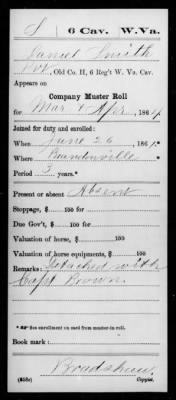 S | 6 Cav. | W.Va.
Daniel Smith
Pvt, Old Co. H, 6 Reg't W. Va. Cav.
Appears on
Company Muster Roll
for Mar & Apr, 1864
Joined for duty and enrolled:
When June 26, 186
Where Brandonville
Period 3 years.*
Present or absent Absent
Stoppage, $ 100 for
Due Gov't, $ 100 for
Valuation of horse, $ 100
Valuation of horse equipments, $ 100
Remarks: Detached with
Capt Brown.
* See enrollment on card from muster-in roll.
Book mark:
Bradshaw
(358c) Copyist.